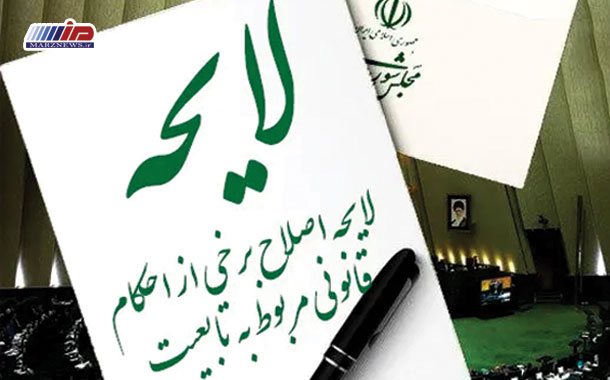 مرز
MARZNEWS.ir
جمهوری اسلامی ایران
مجلس شورای
لایحه
لایحه اصلاح برخی از احکام
قانونی مربوط به تابعیت